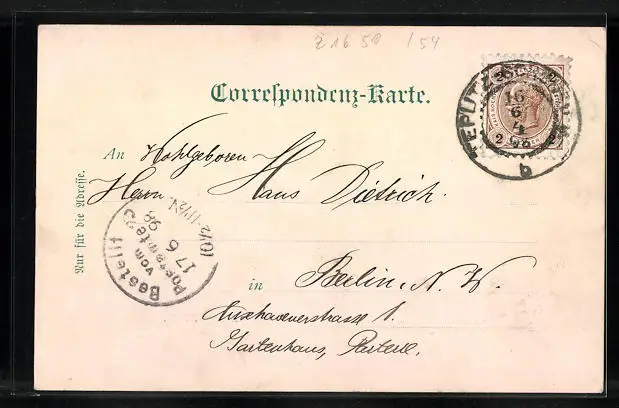 21650 /54
Correspondenz-Karte.
TEPLITZ
16
6
98
b
2 2
An Wohlgeboren
Herrn Hans Dietrich.
Nur für die Adresse.
Bestellt
vom
Postamte 23
17 6
98
10½-11½V.
in Berlin, N. W.
Cuxhavenerstrasse 1.
Gartenhaus, Parterre.